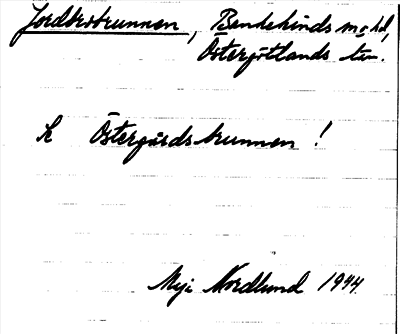 Jordbrobrunnen, Bankekinds sn o hd,
Östergötlands län.
R Östergårdsbrunnen!
Maj Nordlund 1944.